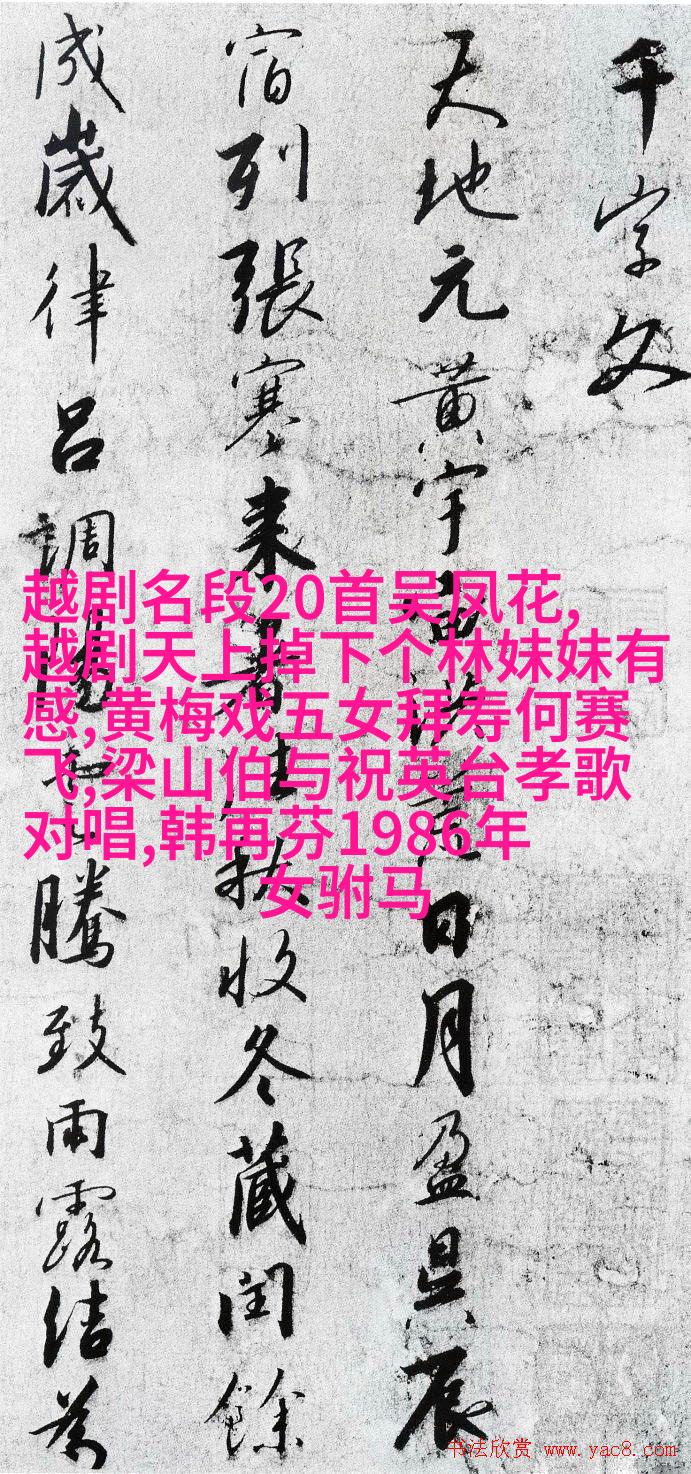 千字文
天地元黄宇宙洪荒日月盈昃辰
宿列張寒来暑往秋收冬藏閏餘
成歲律吕調陽騰致雨露結為
越剧名段20首吴凤花,
越剧天上掉下个林妹妹有
感,黄梅戏,五女拜寿何赛
飞,梁山伯与祝英台孝歌
对唱,韩再芬1986年
女驸马
书法欣赏 www.yac8.com